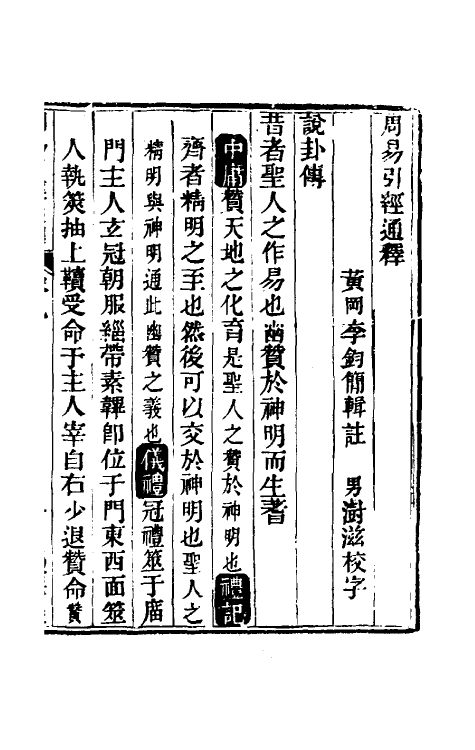 周易引經通釋
黃岡李鈞簡輯註　男澍滋校字
說卦傳
昔者聖人之作易也幽贊於神明而生蓍
中庸贊天地之化育是聖人之贊於神明也禮記
齊者精明之至也然後可以交於神明也聖人之
精明與神明通此幽贊之義也儀禮冠禮筮于廟
門主人玄冠朝服緇帶素韠卽位于門東西面筮
人執筴抽上韇受命于主人宰自右少退贊命贊